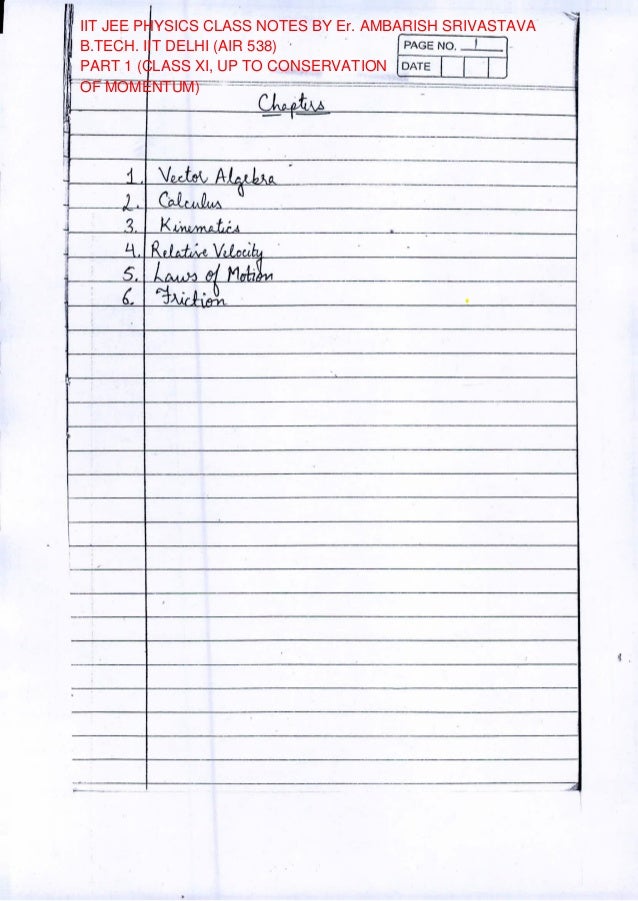 IIT JEE PHYSICS CLASS NOTES BY Er. AMBARISH SRIVASTAVA
B.TECH. IIT DELHI (AIR 538)
PART 1 (CLASS XI, UP TO CONSERVATION
OF MOMENTUM)
PAGE NO. 1
DATE
Chapters
1. Vector Algebra
2. Calculus
3. Kinematics
4. Relative Velocity
5. Laws of Motion
6. Friction